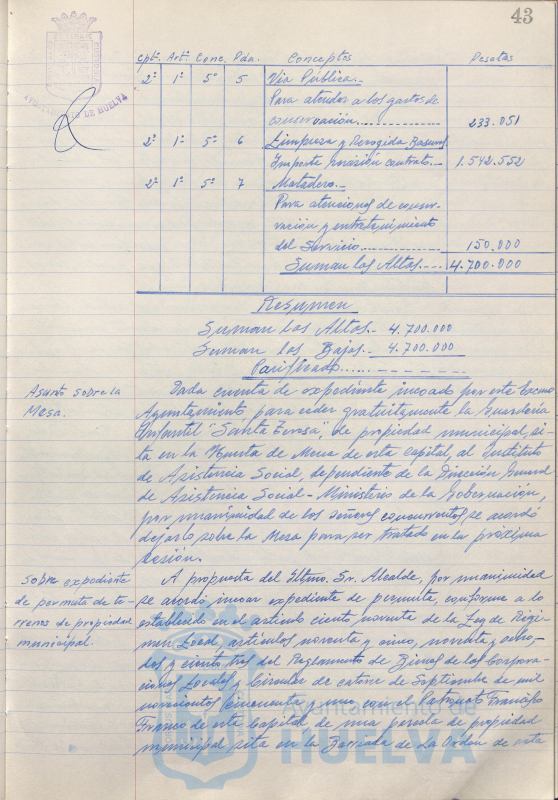 43
AYUNTAMIENTO DE HUELVA
Cptº. Artº. Conc. Pda. Conceptos Pesetas
2º 1º 5º 5 Via Pública.-
Para atender a los gastos de
conservación............ 233.051
2º 1º 5º 6 Limpieza y Recogida Basuras
Importe revisión contrato.- 1.542.552
2º 1º 5º 7 Matadero.-
Para atenciones de conser-
vación y entretenimiento
del Servicio............ 150.000
Suman las Altas.... 4.700.000
Resumen
Suman las Altas.- 4.700.000
Suman las Bajas.- 4.700.000
Asunto sobre la
Mesa.
Dada cuenta de expediente incoado por este Excmo
Ayuntamiento para ceder gratuitamente la Guarderia
Infantil "Santa Teresa", de propiedad municipal, si-
ta en la Huerta de Mena de esta capital, al Instituto
de Asistencia Social, dependiente de la Dirección General
de Asistencia Social - Ministerio de la Gobernación,
por unanimidad de los señores concurrentes se acordó
dejarlo sobre la Mesa para ser tratado en la próxima
sesión.
Sobre expediente
de permuta de te-
rrenos de propiedad
municipal.
A propuesta del Iltmo. Sr. Alcalde, por unanimidad
se acordó incoar expediente de permuta, conforme a lo
establecido en el articulo ciento noventa de la Ley de Régi-
men Local, artículos noventa y cinco, noventa y ocho-
dos y ciento tres del Reglamento de Bienes de las Corpora-
ciones Locales y Circular de catorce de Septiembre de mil
novecientos cincuenta y uno con el Patronato Francisco
Franco de esta Capital de una parcela de propiedad
municipal sita en la Barriada de La Orden de esta
Ayuntamiento de
HUELVA